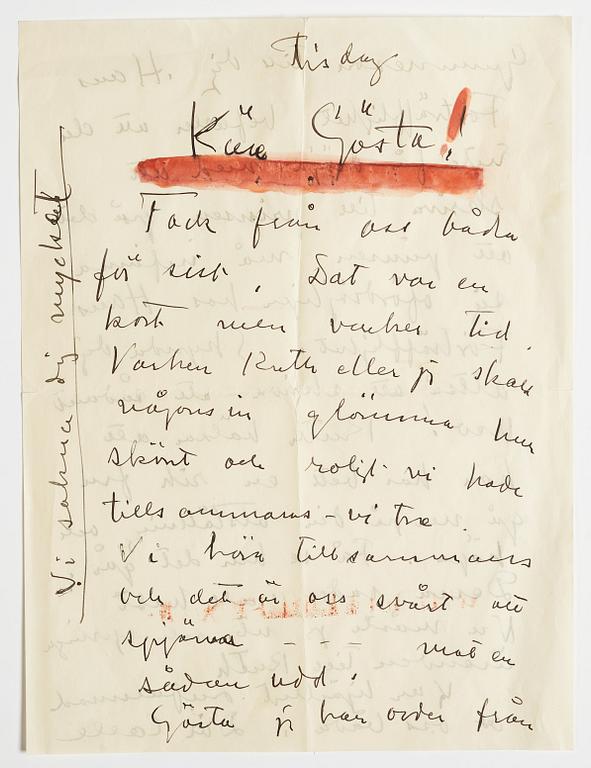 Tisdag
Kära Gösta!
Tack från oss båda
för sist, Dat var en
kort men vacker tid.
Varken Ruth eller jg skall
någonsin glömma hur
skönt och roligt vi hade
tillsammans - vi tre.
Vi höra tillsammans
och det är oss svårt att
spjärna - - mot en
sådan udd!
Gösta jg har order från
Vi sakna dig mycket